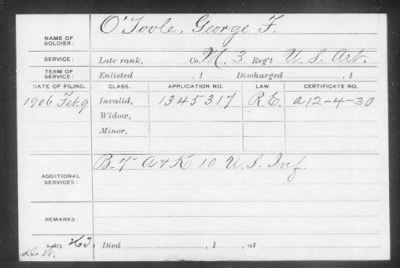 NAME OF SOLDIER: O'Toole, George F.
SERVICE: Late rank, Co. M. 3 Reg't U. S. Art.
TERM OF SERVICE: Enlisted , 1 Discharged , 1
DATE OF FILING. CLASS. APPLICATION NO. LAW. CERTIFICATE NO.
1906 Feb. 9 Invalid, 1345317 R.E. a12-4-30
Widow,
Minor,
ADDITIONAL SERVICES: B. 7" Art K 10 U. S. Inf.
REMARKS:
Died , 1 , at